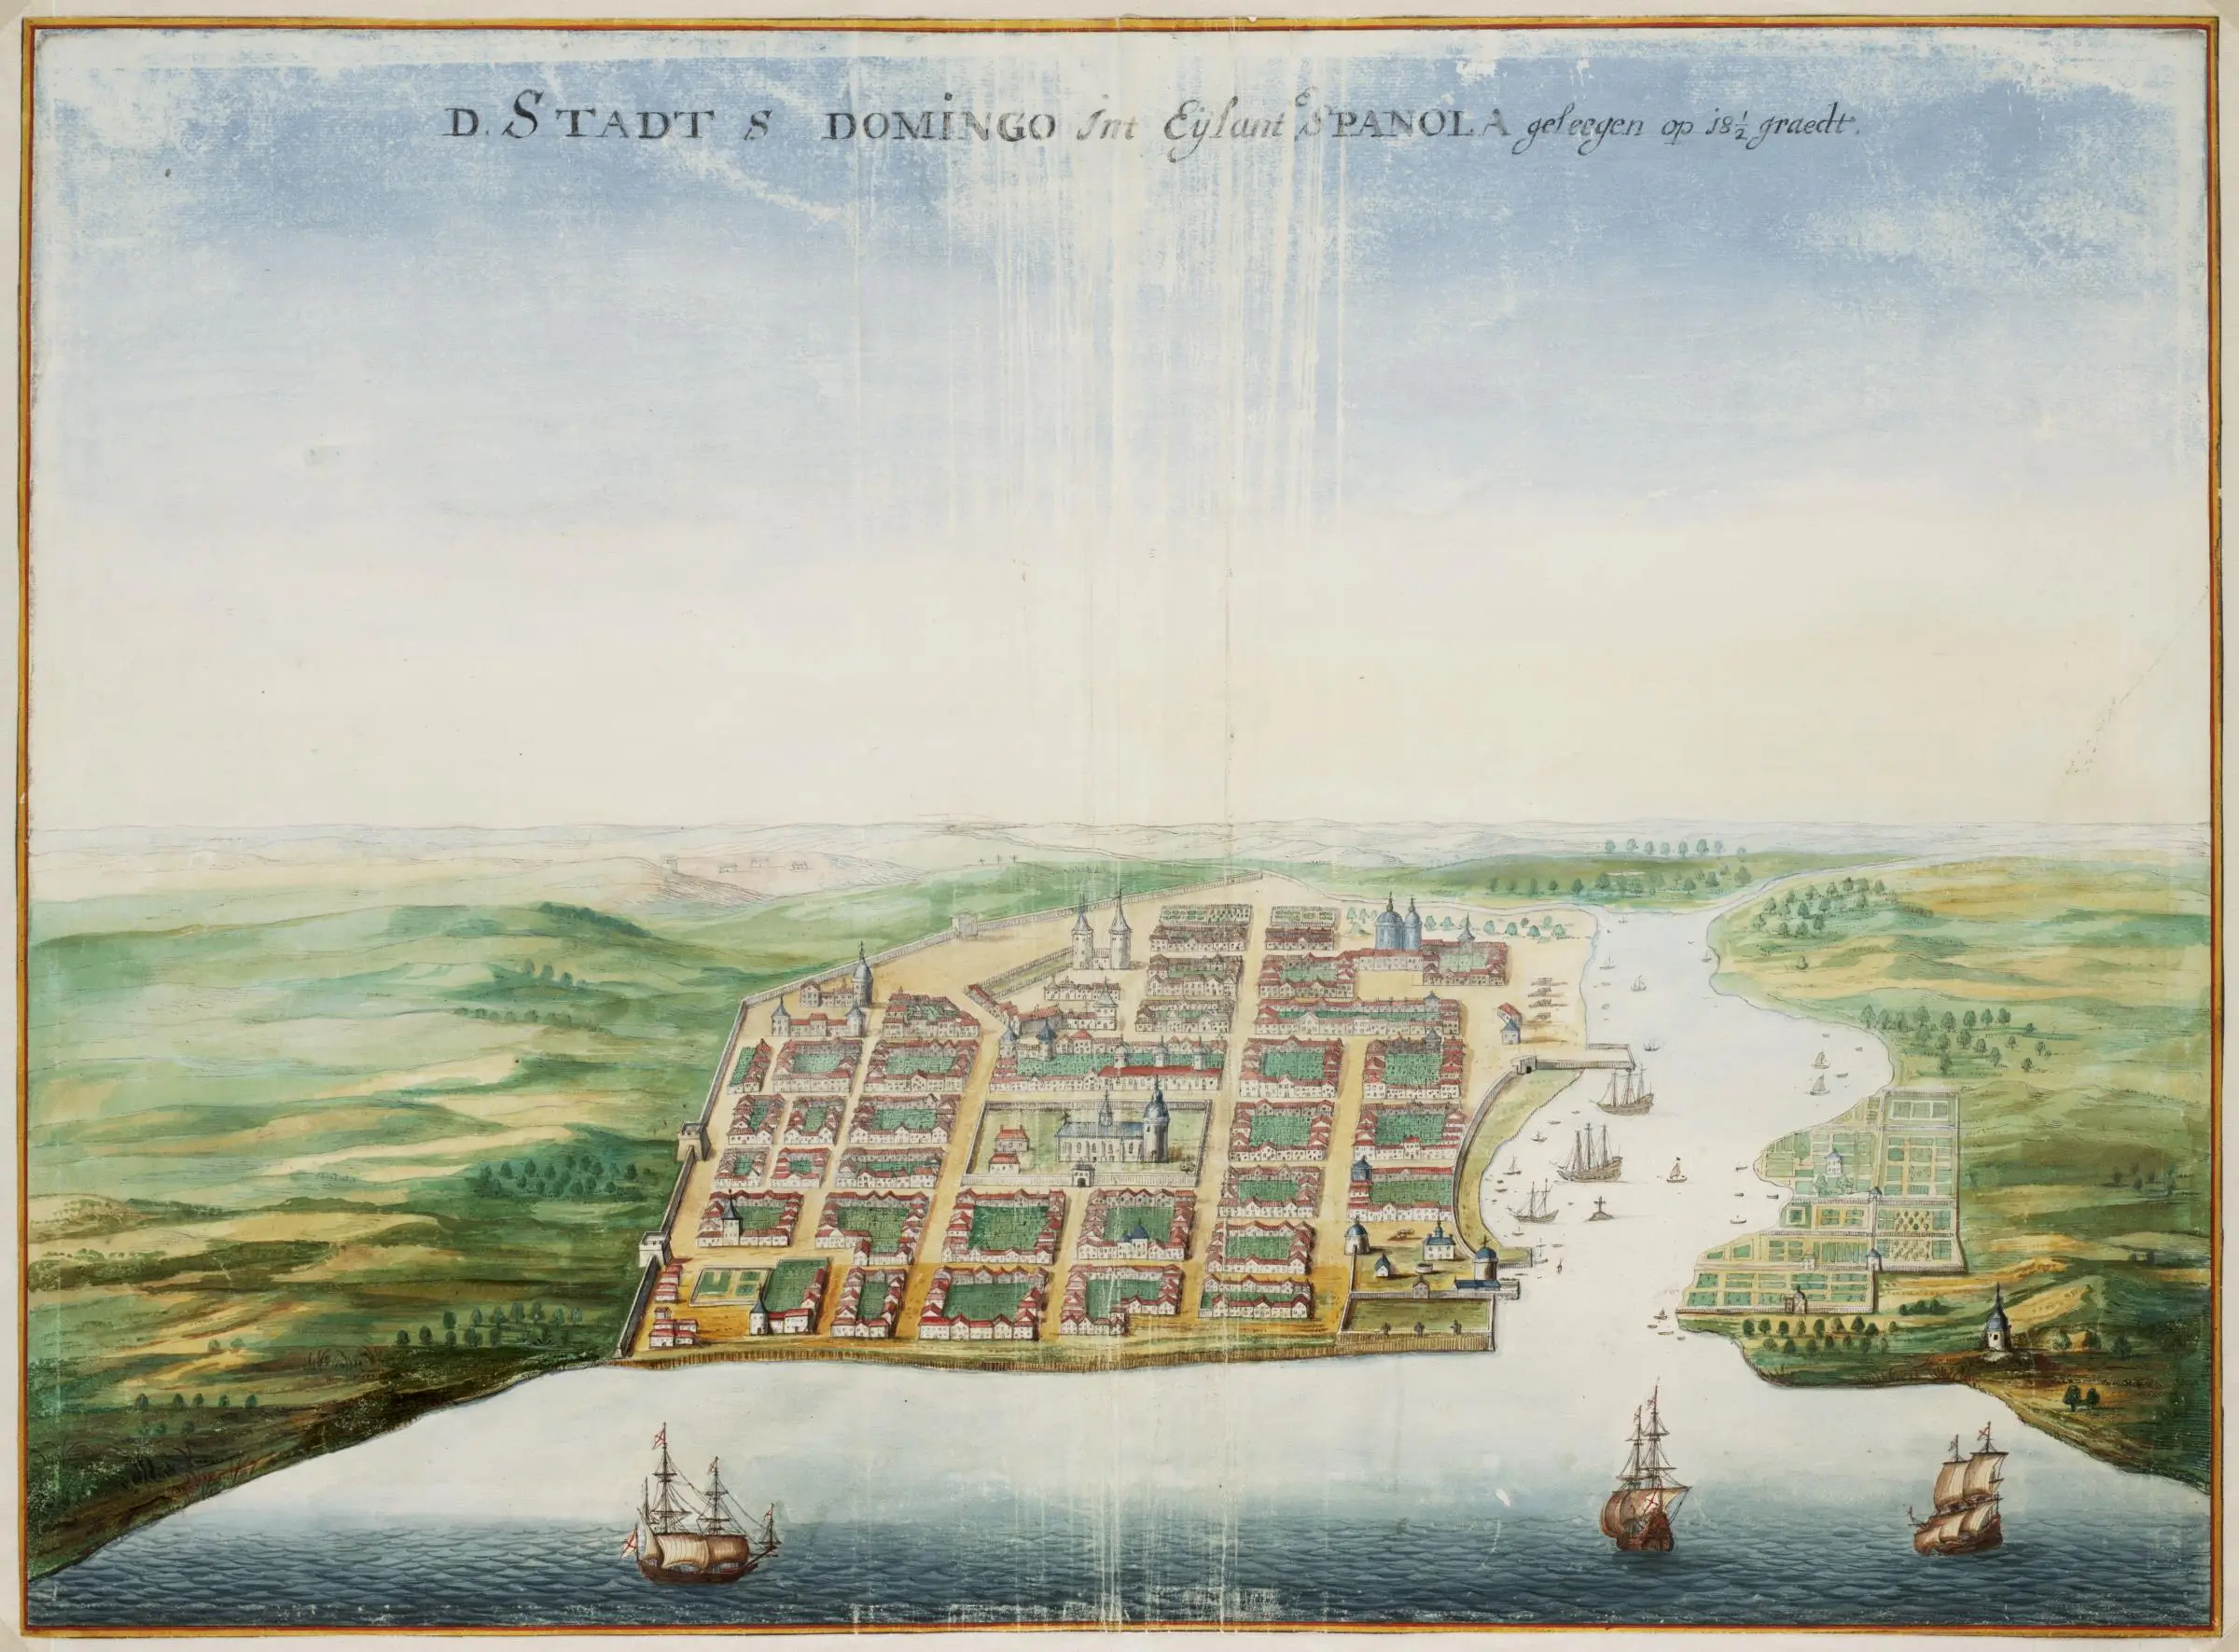 D. STADT S DOMINGO Int Eylant eSPANOLA geleegen op 18½ graedt.